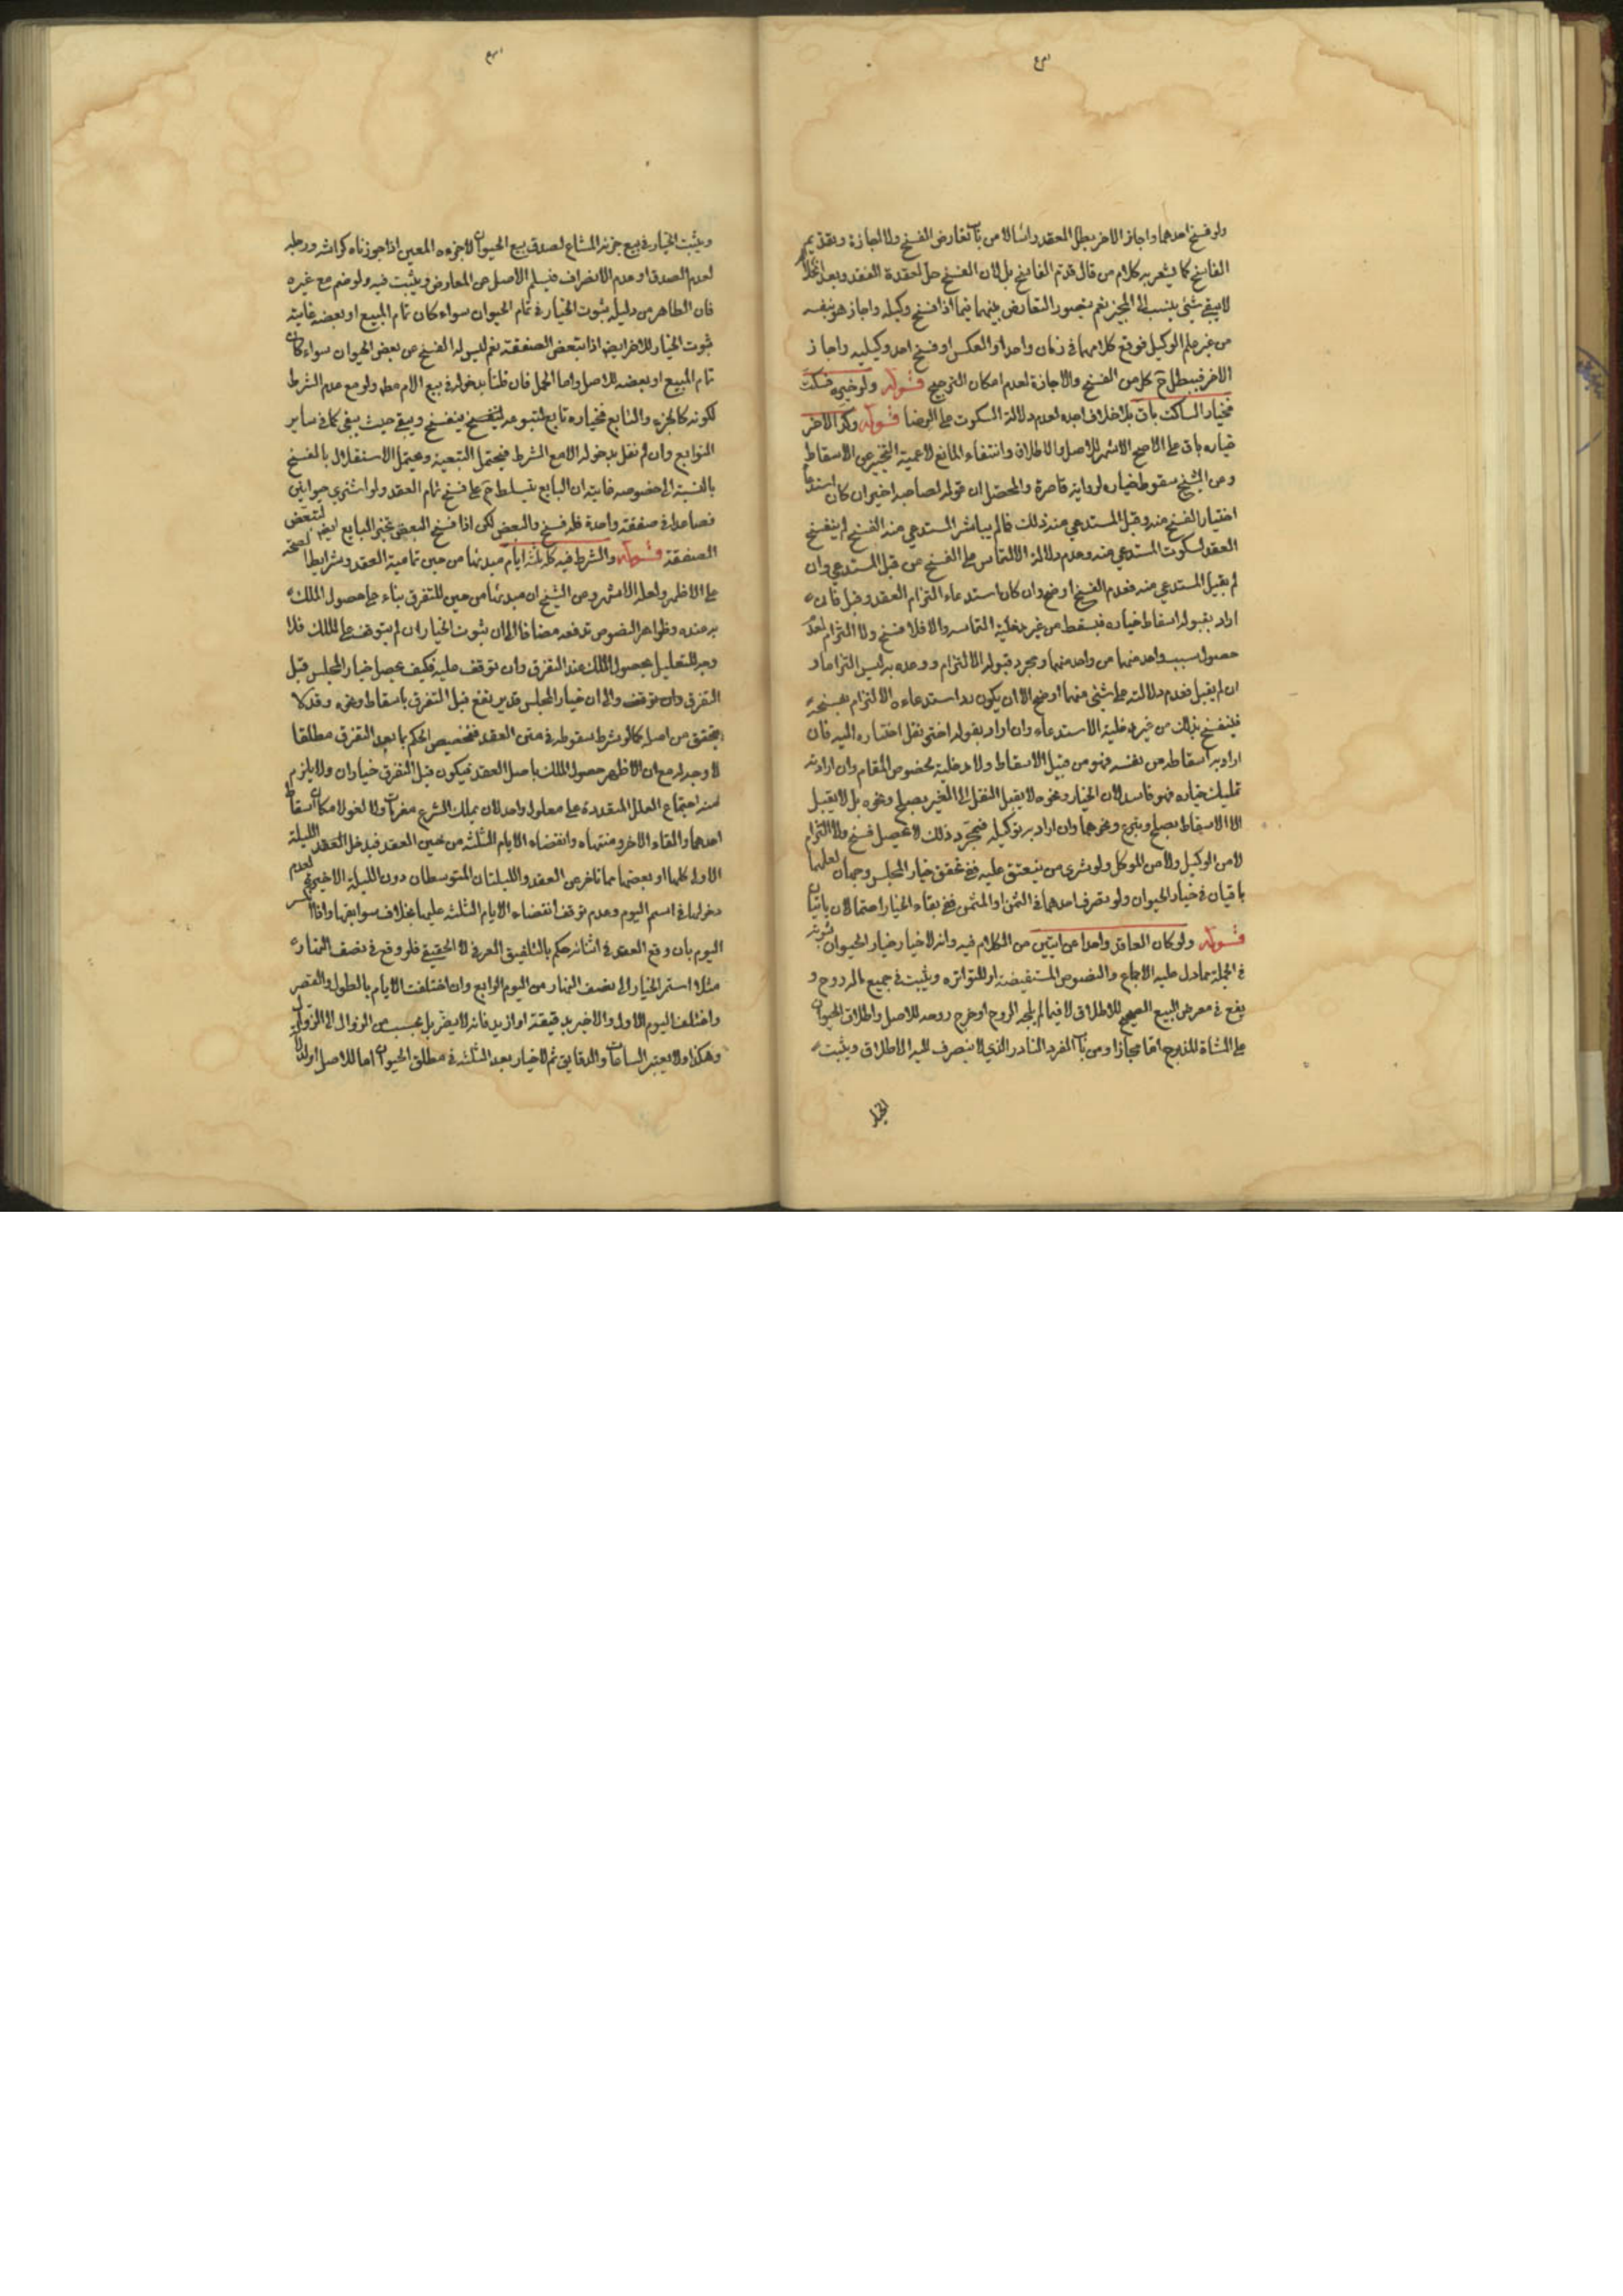 ولو فسخ احدهما واجاز الاخر بطل العقد راسا لا من باب تعارض الفسخ والاجازة وتقديم
الفاسخ كما يشعر به كلام من قال قدم الفاسخ بل لان الفسخ حل لعقدة العقد وبعد انحلالها
لا يبقى شئ ينسب الى المجيز نعم يتصور التعارض بينهما فيما اذا فسخ وكيله واجاز هو بنفسه
من غير علم الوكيل فوقع كلامهما في زمان واحد او العكس او فسخ احد وكيليه واجاز
الاخر فيبطل ح كل من الفسخ والاجازة لعدم امكان الترجيح قوله ولو خيره فسكت
فخيار الساكت باق بلا خلاف اجده لعدم دلالة السكوت على الرضا قوله وكذا الاخر
خياره باق على الاصح الاشهر للاصل والاطلاق وانتفاء المانع لاعمية التخيير عن الاسقاط
وعن الشيخ سقوط خياره لرواية قاصرة والمحصل ان قوله لصاحبه اختر ان كان استدعاء
اختيار الفسخ منه وقبل المستدعي منه ذلك فما لم يباشر المستدعي منه الفسخ لم ينفسخ
العقد لسكوت المستدعي منه وعدم دلالة الالتماس على الفسخ من قبل المستدعي وان
لم يقبل المستدعي منه فعدم الفسخ اوضح وان كان استدعاء التزام العقد وقبل فان
اراد بقبوله اسقاط خياره فيسقط من غير مدخلية التماسه والا فلا فسخ ولا التزام لعدم
حصول سبب واحد منهما من واحد منهما ومجرد قبوله الالتزام ووعده به ليس التزاما و
ان لم يقبل فعدم دلالته على شئ منهما اوضح الا ان يكون رد استدعاءه الالتزام بفسخه
فينفسخ بذلك من غير مدخلية الاستدعاء وان اراد بقوله اختر نقل اختياره اليه فان
اراد به اسقاطه من نفسه فهو من قبيل الاسقاط ولا مدخلية لخصوص المقام وان اراد به
تمليك خياره فهو فاسد لان الخيار ونحوه لا يقبل النقل الى الغير بصلح ونحوه بل لا يقبل
الا الاسقاط بصلح وبتبرع ونحوهما وان اراد به توكيله فبمجرد ذلك لا يحصل فسخ ولا التزام
لا من الوكيل ولا من الموكل ولو شرى من ينعتق عليه ففي تحقق خيار المجلس وجهان لعلهما
باقيان في خيار الحيوان ولو تصرف احدهما في الثمن او المثمن ففي بقاء الخيار احتمالان ياتيان
قوله ولو كان العاقد واحدا عن اثنين من الكلام فيه وانه لا خيار خيار الحيوان ثبوته
في الجملة مما دل عليه الاجماع والنصوص المستفيضة او المتواتره ويثبت في جميع ماله روح و
يقع في معرض البيع الصحيح للاطلاق لا فيما لم يلجه الروح او خرج روحه للاصل واطلاق الحيوان
على الشاة المذبوح اما مجازا ومن باب الفرد النادر الذي لا ينصرف اليه الاطلاق ويثبت
الخيار
ويثبت الخيار في بيع جزئه المشاع لصدق بيع الحيوان لا جزءه المعين اذا جوزناه كراسه ورجله
لعدم الصدق او عدم الانصراف فيسلم الاصل عن المعارض ويثبت فيه ولو ضم مع غيره
فان الظاهر من دليله ثبوت الخيار في تمام الحيوان سواء كان تمام المبيع او بعضه غايته
ثبوت الخيار للاخر ايض اذا تبعض الصفقة نعم ليس له الفسخ من بعض الحيوان سواء كان
تمام المبيع او بعضه للاصل واما الحمل فان قلنا بدخوله في بيع الام مطلقا ولو مع عدم الشرط
لكونه كالجزء والتابع فخياره تابع لمتبوعه لينفسخ حيث ينفسخ ويبقى حيث يبقى كما في ساير
التوابع وان لم نقل بدخوله الا مع الشرط فيحتمل التبعية ويحتمل الاستقلال بالفسخ
بالنسبة الى خصوصه غايته ان البايع يتسلط ح على فسخ تمام العقد ولو اشترى حيوانين
فصاعدا في صفقة واحدة فله فسخ والبعض لكن اذا فسخ البعض تخير البايع ايض لتبعض
الصفقة قوله والشرط فيه كله ثلثة ايام مبدئها من حين تمامية العقد وشرايط الصحة
على الاظهر ولعله الاشهر وعن الشيخ ان مبدئها من حين التفرق بناء على حصول الملك
به عنده وظواهر النصوص تدفعه مضافا الى ان ثبوت الخيار ان لم يتوقف على الملك فلا
وجه للتعليل بحصول الملك عند التفرق وان توقف عليه فكيف يحصل خيار المجلس قبل
التفرق وان توقف والى ان خيار المجلس قد يرتفع قبل التفرق باسقاط ونحوه وقد لا
يتحقق من اصله كما لو شرط سقوطه في متن العقد فتخصيص الحكم بما بعد التفرق مطلقا
لا وجه له مع ان الاظهر حصول الملك باصل العقد فيكون قبل التفرق خياران ولا يلزم
منه اجتماع العلل المتعددة على معلول واحد لان علل الشرع معرفات ولا لغو لامكان اسقاط
احدهما وابقاء الاخر ومنتهاه وانقضاء الايام الثلثه من حين العقد فيدخل الليلة
الاولى كلها او بعضها مما تاخر عن العقد والليلتان المتوسطان دون الليلة الاخيرة لعدم
دخولها في اسم اليوم وعدم توقف انقضاء الايام الثلثه عليها بخلاف سوابقها واذا انكسر
اليوم بان وقع العقد في اثنائه حكم بالتلفيق العرفي لا الحقيقي فلو وقع في نصف النهار
مثلا استمر الخيار الى نصف النهار من اليوم الرابع وان اختلفت الايام بالطول والقصر
واختلف اليوم الاول والاخير بدقيقة او ازيد فانه لا يضر بل يحسب من الزوال الى الزوال
وهكذا ولا يعتبر الساعات والدقايق ثم لا خيار بعد الثلثه في مطلق الحيوان اما للاصل